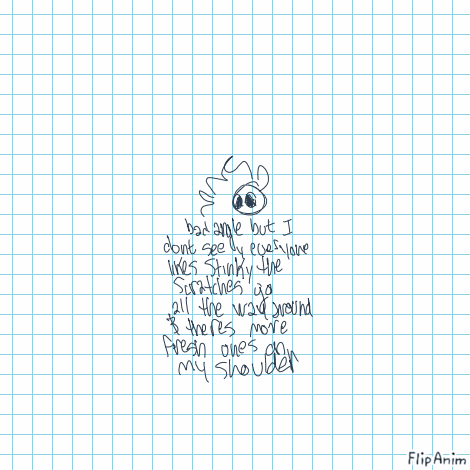 bad angle but I
dont see y everyone
likes Stinky the
Scratches go
all the way around
& theres more
fresh ones on
my shoulder
FlipAnim